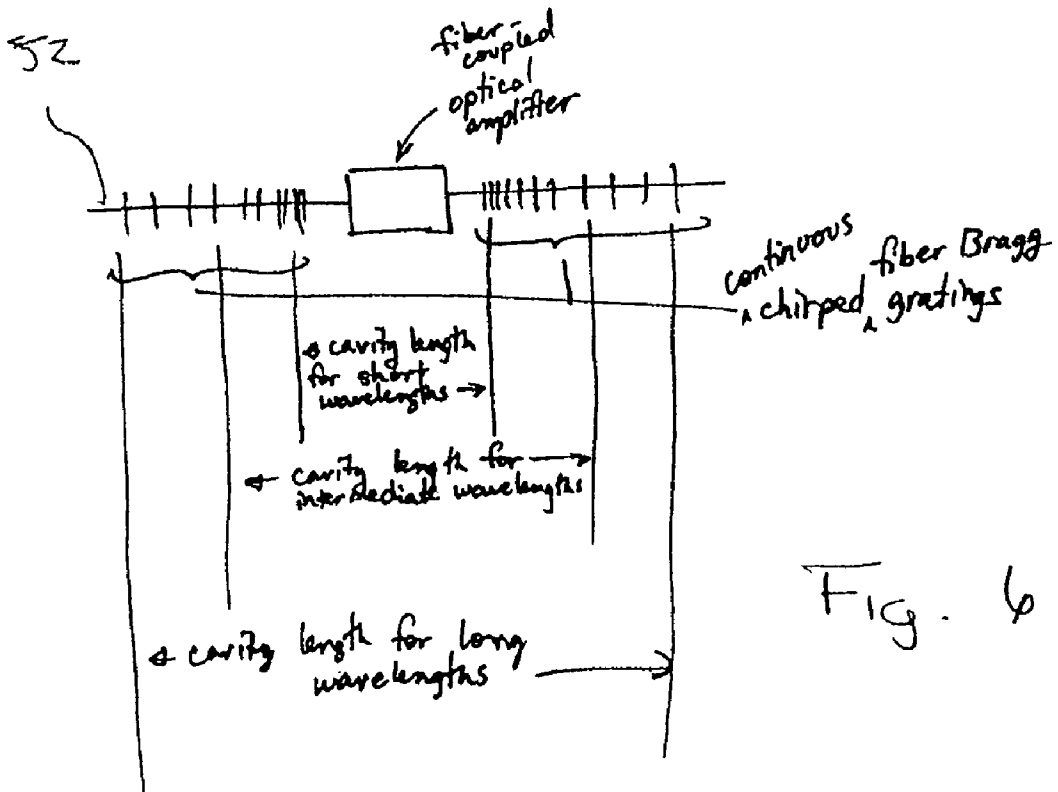 52
fiber-
coupled
optical
amplifier
continuous
chirped fiber Bragg
gratings
cavity length
for short
wavelengths
cavity length for
intermediate wavelengths
cavity length for long
wavelengths
Fig. 6